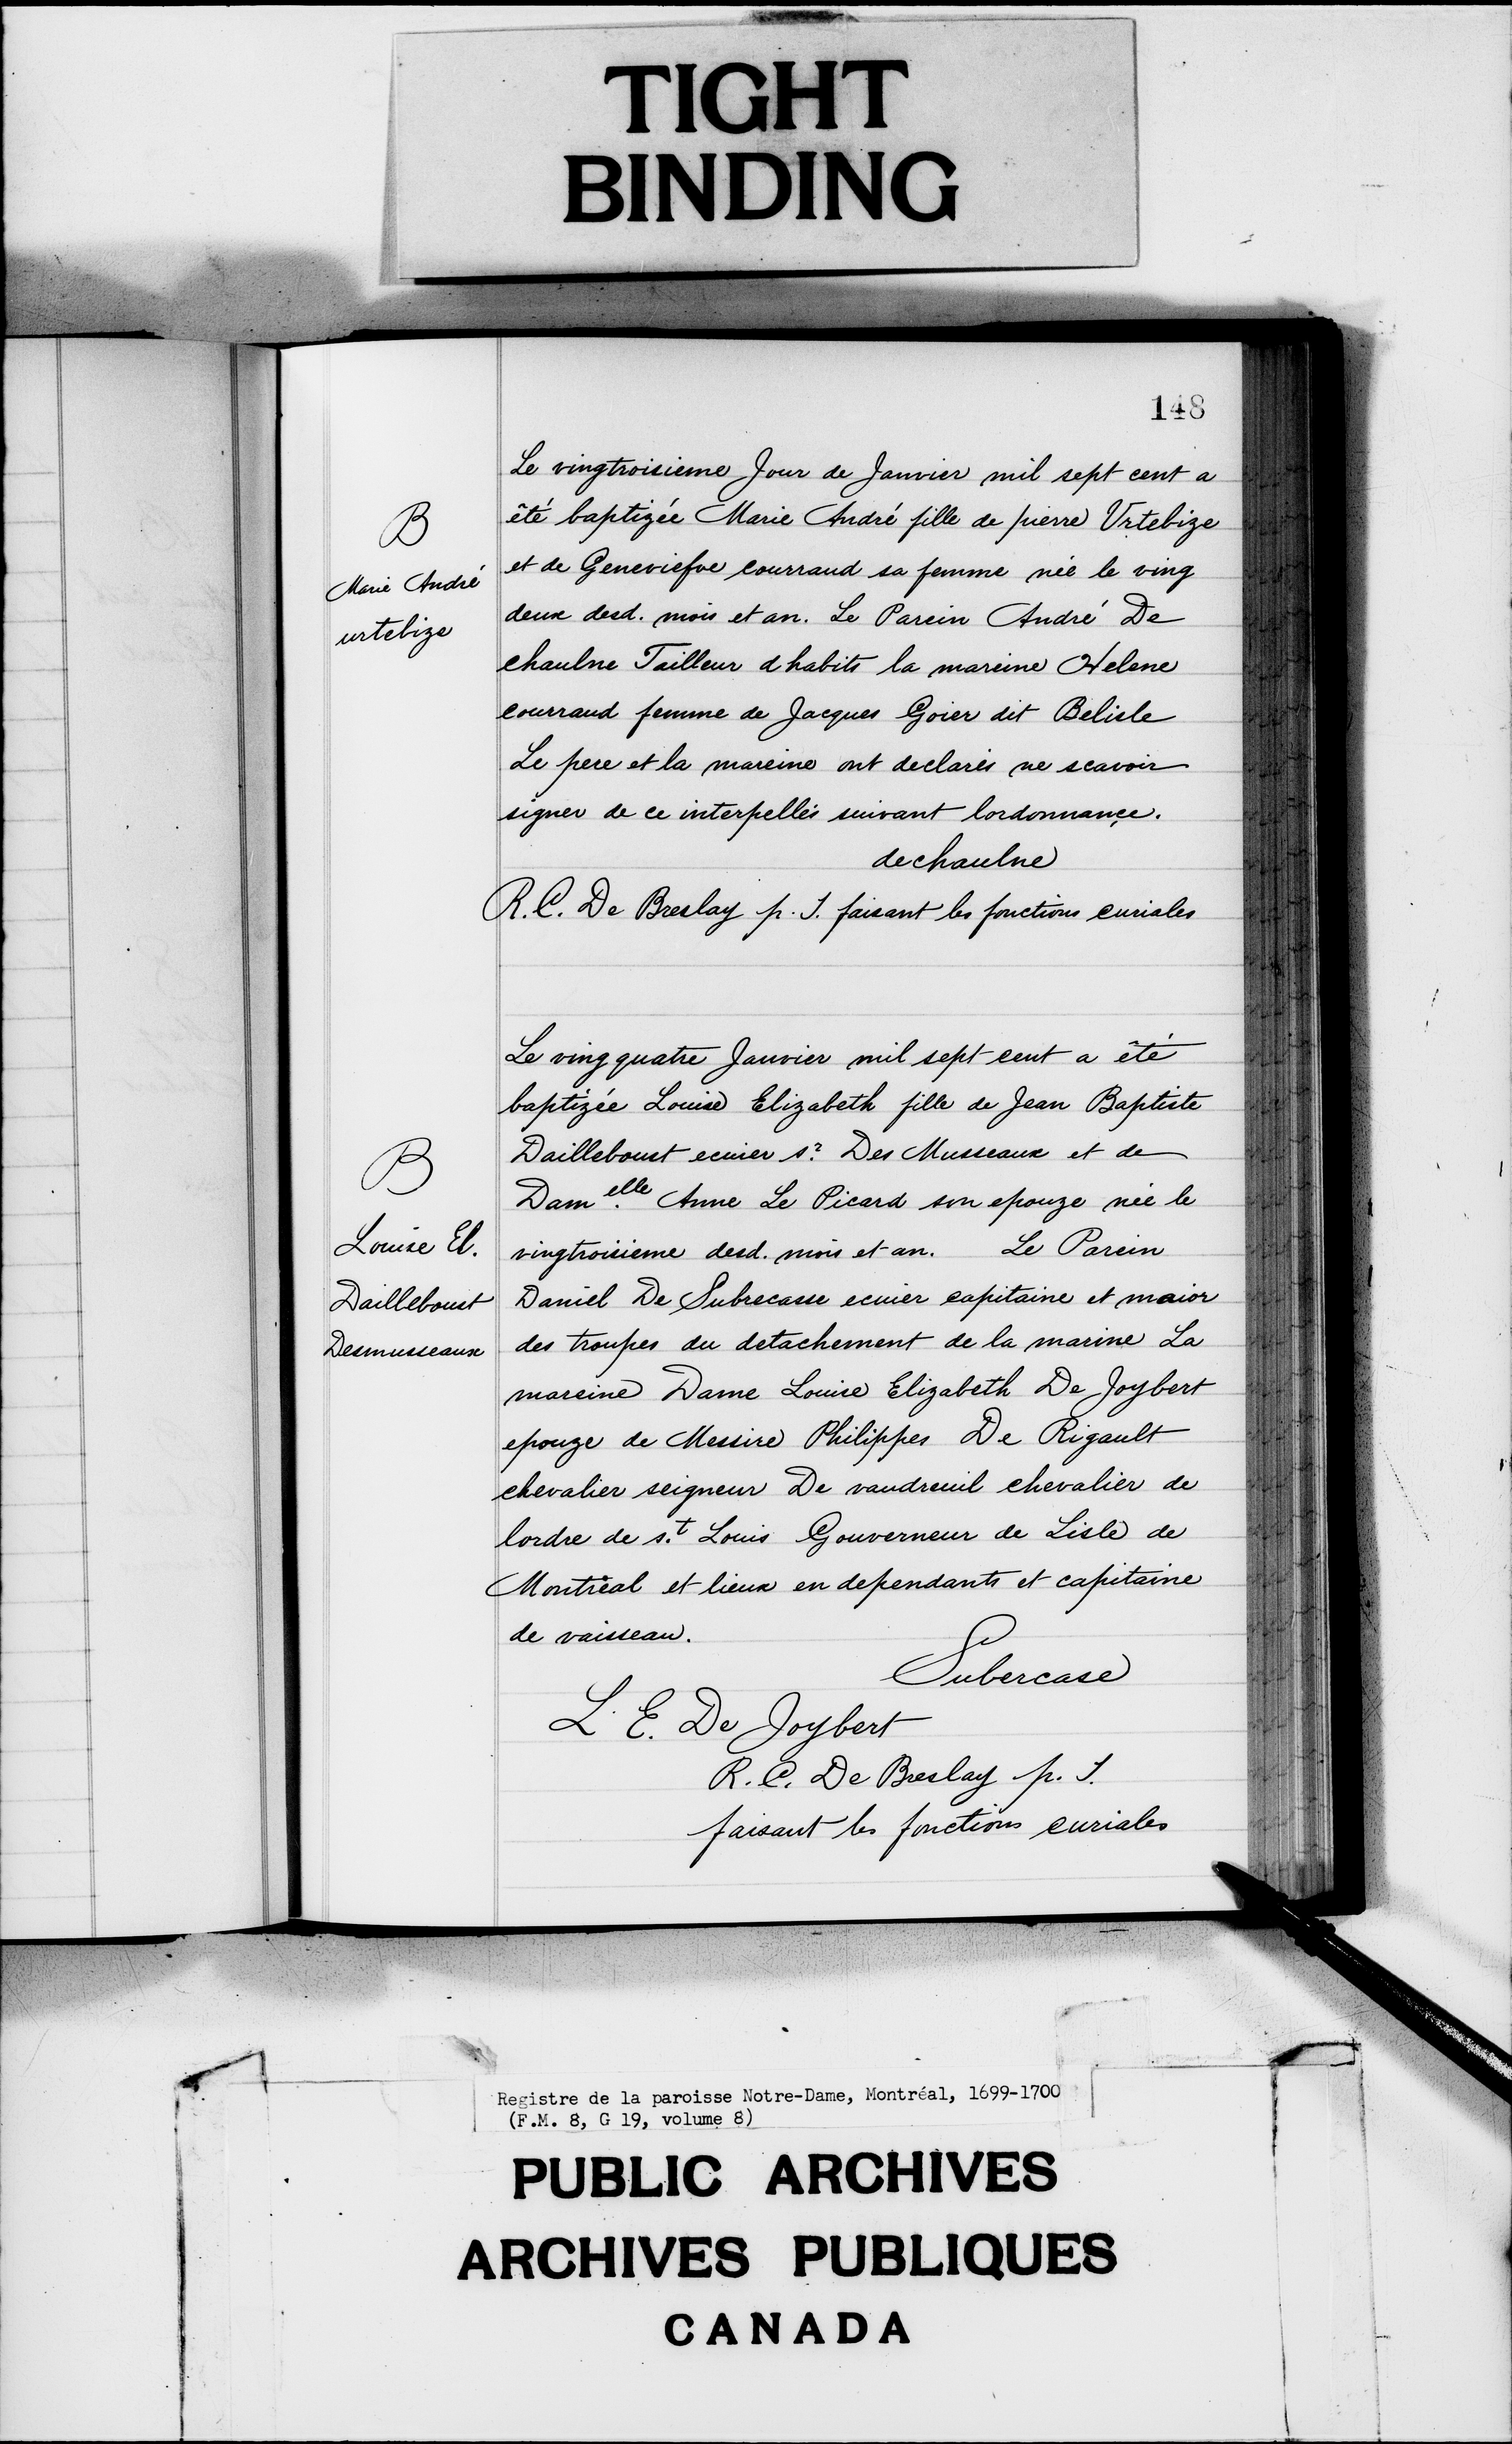 TIGHT
BINDING
148
B
Marie André
urtebize
Le vingtroisieme Jour de Janvier mil sept cent a
été baptizée Marie André fille de pierre Urtebize
et de Geneviefve courraud sa femme née le ving
deux desd. mois et an. Le Parein André De
chaulne Tailleur dhabits la mareine Helene
courraud femme de Jacques Goier dit Belisle
Le pere et la mareine ont declarés ne scavoir
signer de ce interpellés suivant lordonnançe.
dechaulne
R. C. De Breslay p. J. faisant les fonctions curiales
B
Louise El.
Dailleboust
Desmusseaux
Le ving quatre Janvier mil sept cent a été
baptizée Louise Elizabeth fille de Jean Baptiste
Dailleboust ecuier sr. Des Musseaux et de
Damelle. Anne Le Picard son epouze née le
vingtroisieme desd. mois et an. Le Parein
Daniel De Subrecasse ecuier capitaine et maior
des troupes du detachement de la marine La
mareine Dame Louise Elizabeth De Joybert
epouze de Messire Philippes De Rigault
chevalier seigneur De vaudreuil chevalier de
lordre de s.t Louis Gouverneur de Lisle de
Montréal et lieux en dependants et capitaine
de vaisseau.
Subercase
L. E. De Joybert
R. C. De Breslay p. J.
faisant les fonctions curiales
Registre de la paroisse Notre-Dame, Montréal, 1699-1700
(F.M. 8, G 19, volume 8)
PUBLIC ARCHIVES
ARCHIVES PUBLIQUES
CANADA